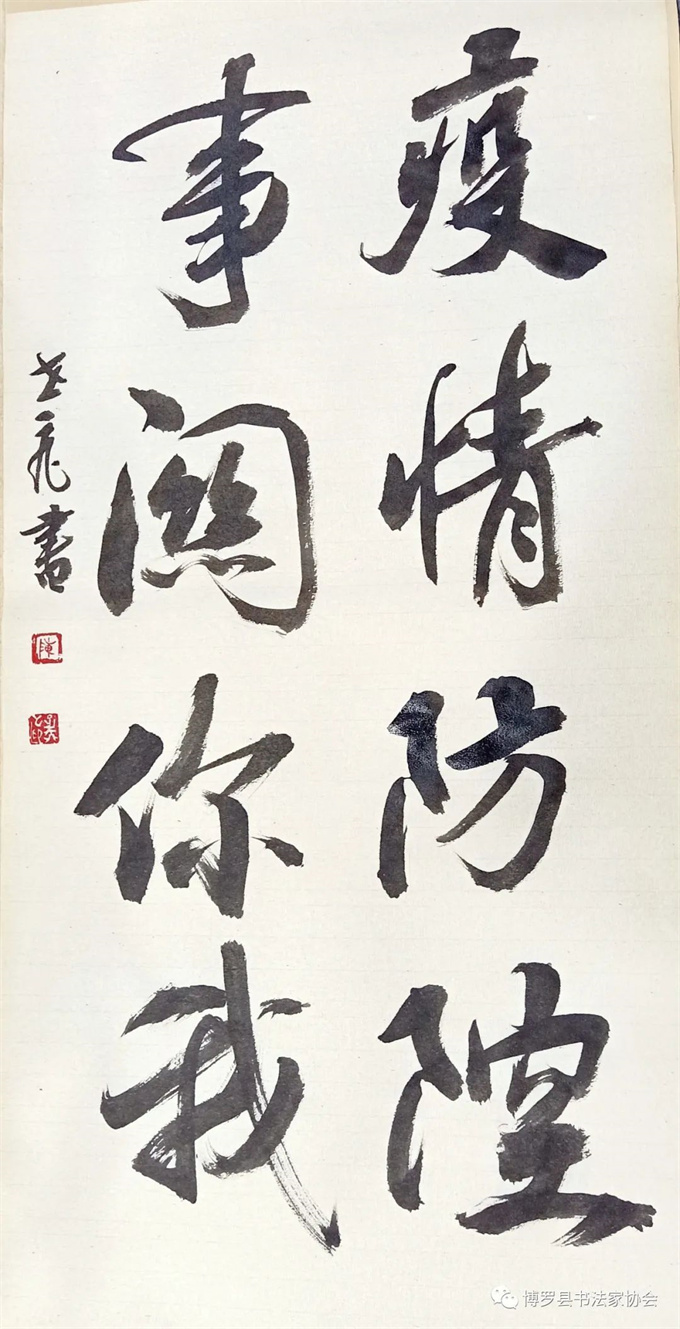 疫情防控
事關你我
書
博罗县书法家协会